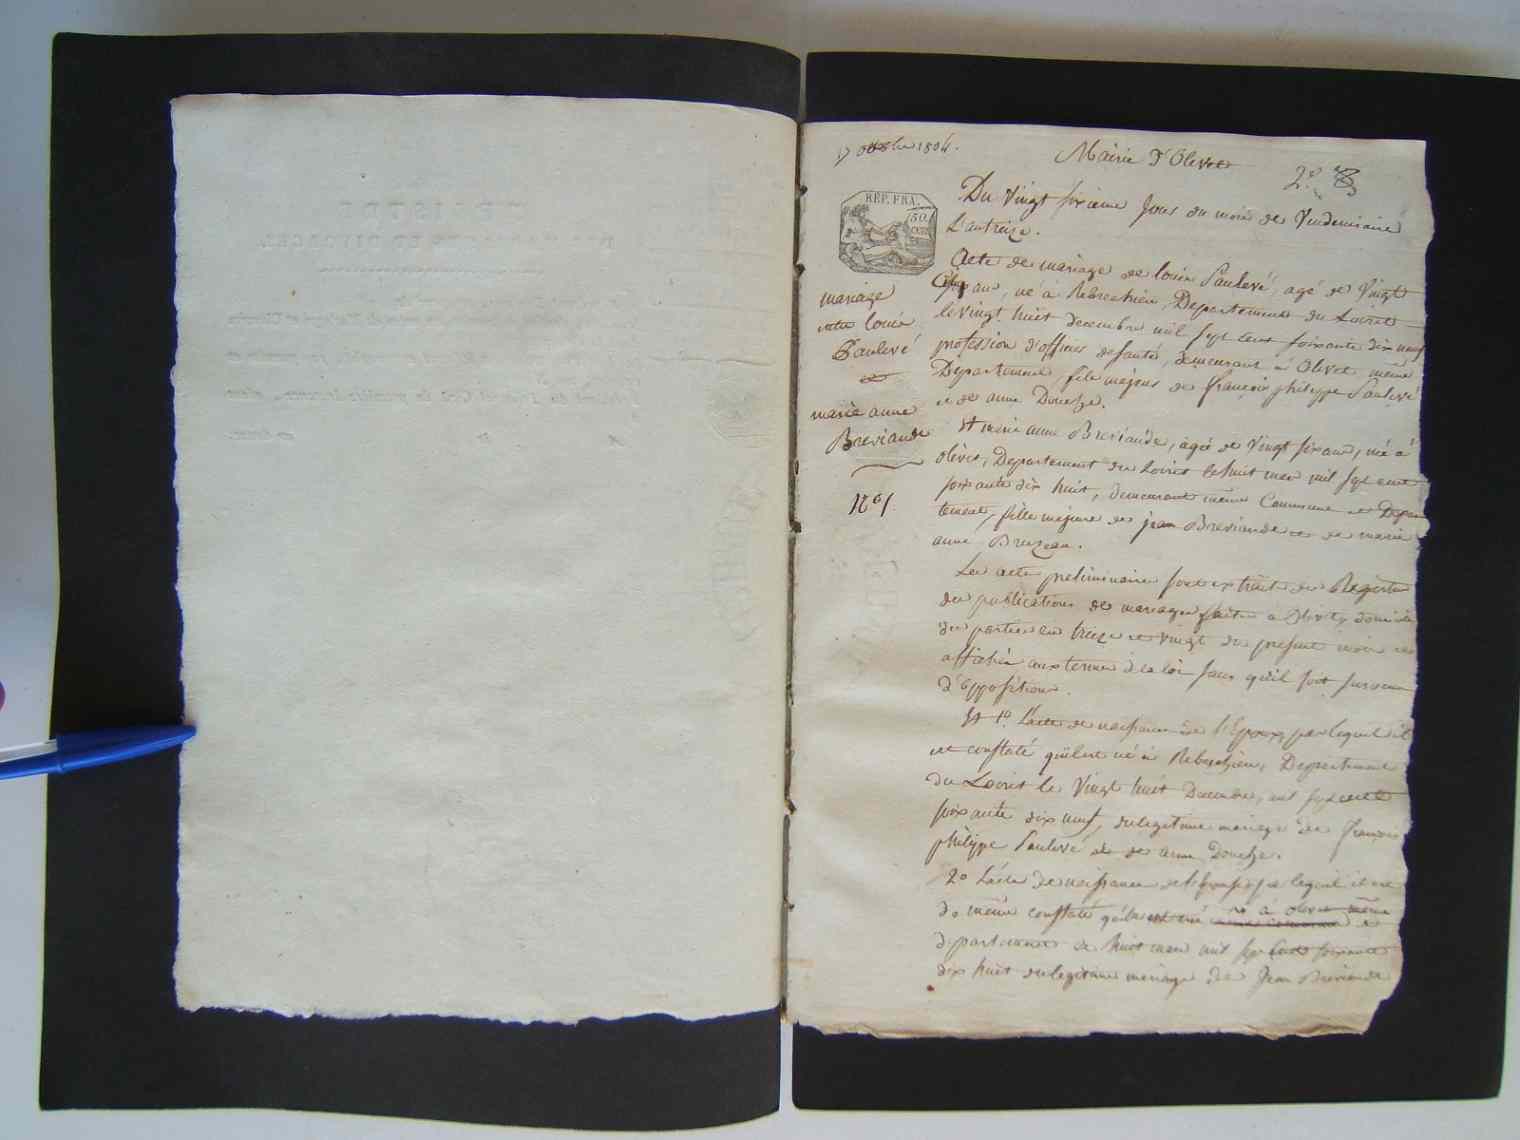 17 8bre 1804.
Mairie d'Olivet
2.e
REP. FRA.
50
CENT
Du vingt sixieme Jour du mois de Vendemiaire
L'an treize.
mariage
entre louis
Saulevé
et
marie anne
Breviande
N.o 1.
Acte de mariage de louis Saulevé, agé de Vingt
cinq ans, né à Rebrechien, Departement du Loiret
le vingt huit decembre mil sept cent soixante dix neuf
profession d'officier de santé, demeurant à Olivet même
Departement, fils majeur de françois philippe Saulevé
et de anne Douelze.
Et marie anne Breviande, agée de Vingt six ans, née à
olivet, Departement du Loiret le huit mars mil sept cent
soixante dix huit, demeurant même Commune et Depar
tement, fille majeure de jean Breviande et de marie
anne Bruzeau.
Les actes preliminaires sont extraits des Registres
des publications de mariages faites à Olivet, domicile
des parties les treize et vingt du présent mois et
affichés aux termes de la loi sans qu'il soit survenu
d'opposition.
Et 1.o L'acte de naissance de l'Epoux, par lequel il
est constaté qu'il est né à Rebrechien, Departement
du Loiret le Vingt huit Decembre, mil sept cent
soixante dix neuf, du legitime mariage de françois
philippe Saulevé et de anne Douelze.
2.o L'acte de naissance de l'epouse par lequel il est
de même constaté qu'elle est née à olivet même
departement le huit mars mil sept cent soixante
dix huit du legitime mariage de Jean Breviande